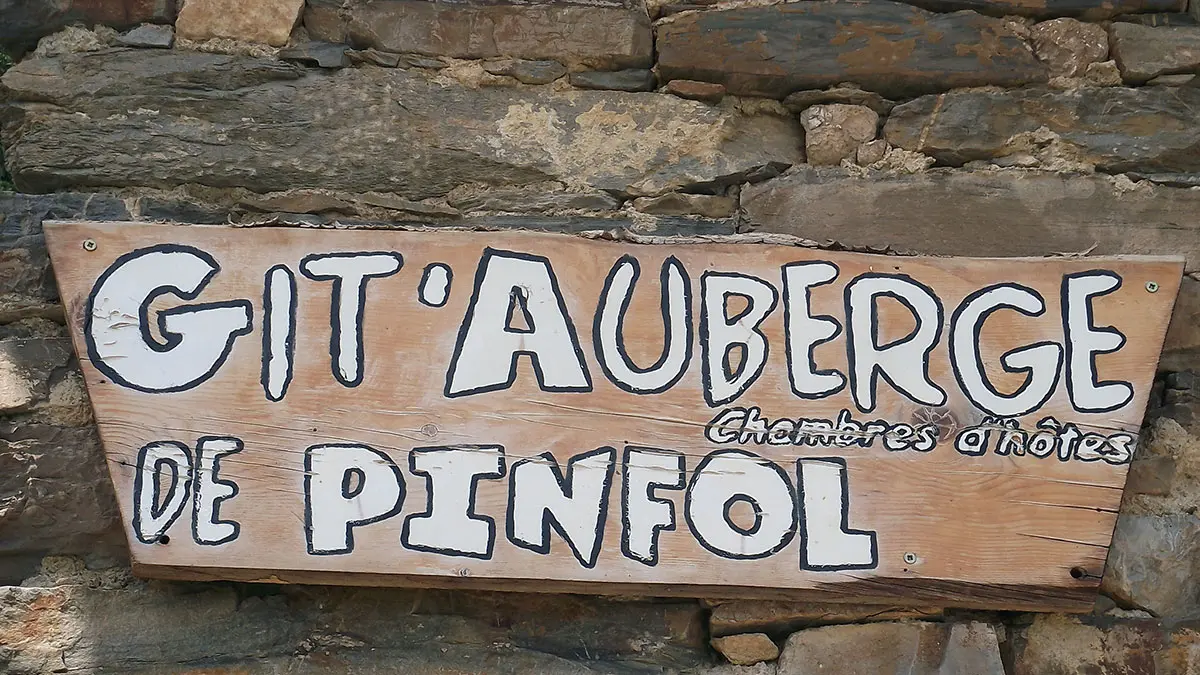 GIT'AUBERGE
Chambres d'hôtes
DE PINFOL